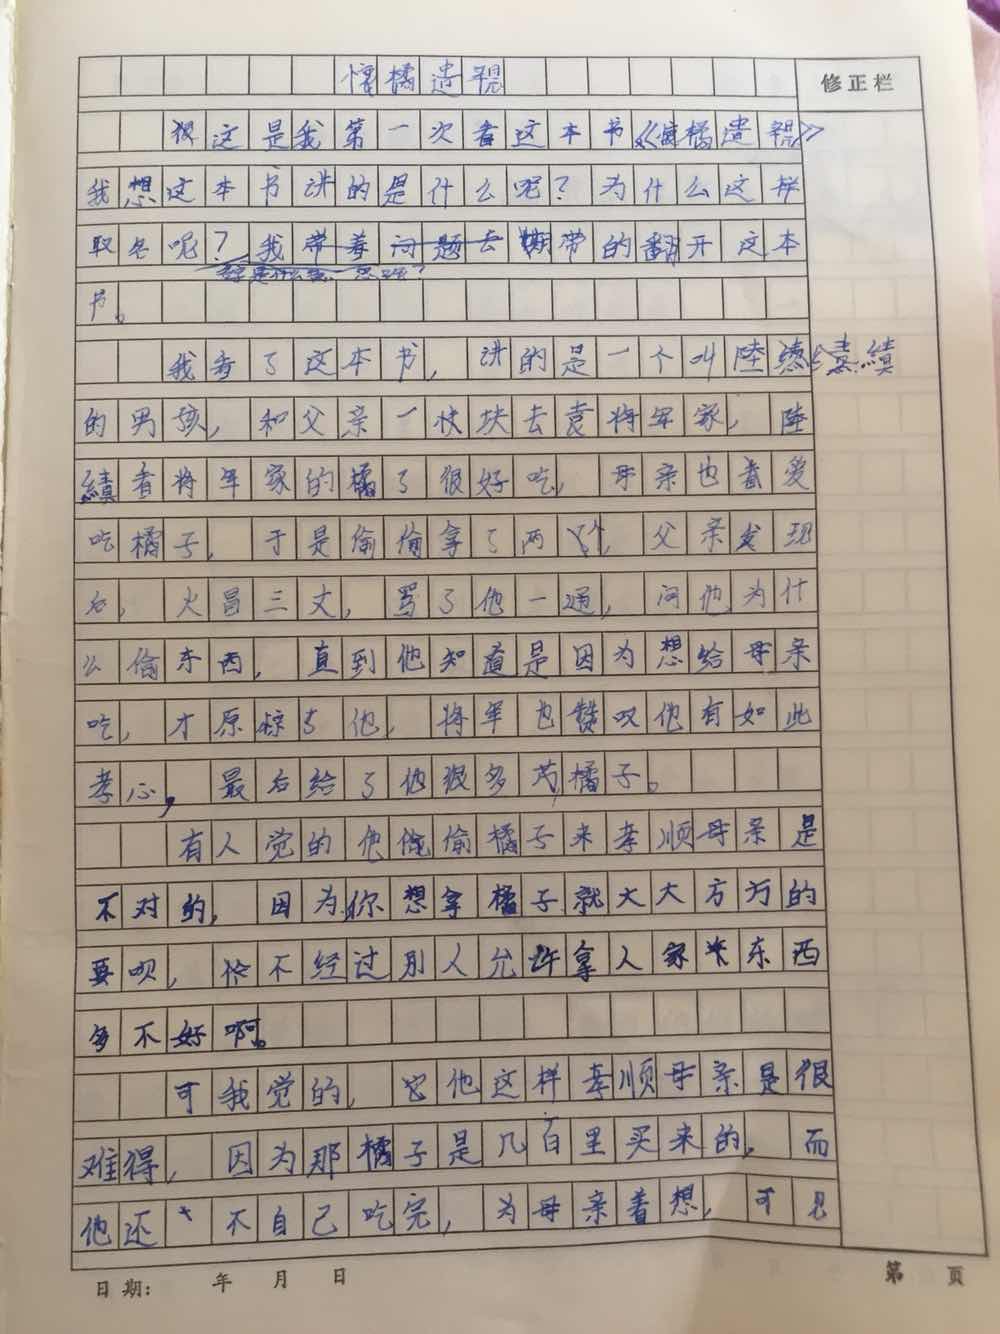 怀橘遗親
修正栏
这是我第一次看这本书《懷橘遗親》
我想这本书讲的是什么呢？为什么这样
取名呢？我带着问题去 带的翻开这本
书。
我看了这本书，讲的是一个叫陸績
的男孩，和父亲一快块去袁将军家，陸
績看将军家的橘了很好吃，母亲也喜爱
吃橘子，于是偷偷拿了两个，父亲发现
后，火冒三丈，骂了他一通，问他为什
么偷东西，直到他知道是因为想给母亲
吃，才原谅了他，将军也赞叹他有如此
孝心，最后给了他很多 橘子。
有人觉的他偷偷橘子来孝顺母亲是
不对的，因为你想拿橘子就大大方方的
要呗，你不经过别人允许拿人家 东西
多不好啊。
可我觉的，它他这样孝顺母亲是很
难得，因为那橘子是几百里买来的，而
他还 不自己吃完，为母亲着想，可见
日期： 年 月 日
第 页